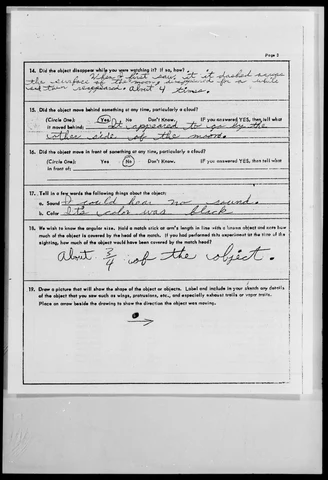 Page 2
14. Did the object disappear while you were watching it? If so, how?
When I first saw it it dashed across
the surface of the moon, disappeared for a while
and then reappeared. About 4 times.
15. Did the object move behind something at any time, particularly a cloud?
(Circle One): Yes No Don't Know. IF you answered YES, then tell what
it moved behind: It appeared to go by the
other side of the moon.
16. Did the object move in front of something at any time, particularly a cloud?
(Circle One): Yes No Don't Know. IF you answered YES, then tell what
in front of:
17. Tell in a few words the following things about the object:
a. Sound I could hear no sound.
b. Color Its color was black
18. We wish to know the angular size. Hold a match stick at arm's length in line with a known object and note how
much of the object is covered by the head of the match. If you had performed this experiment at the time of the
sighting, how much of the object would have been covered by the match head?
About 3/4 of the object.
19. Draw a picture that will show the shape of the object or objects. Label and include in your sketch any details
of the object that you saw such as wings, protrusions, etc., and especially exhaust trails or vapor trails.
Place an arrow beside the drawing to show the direction the object was moving.